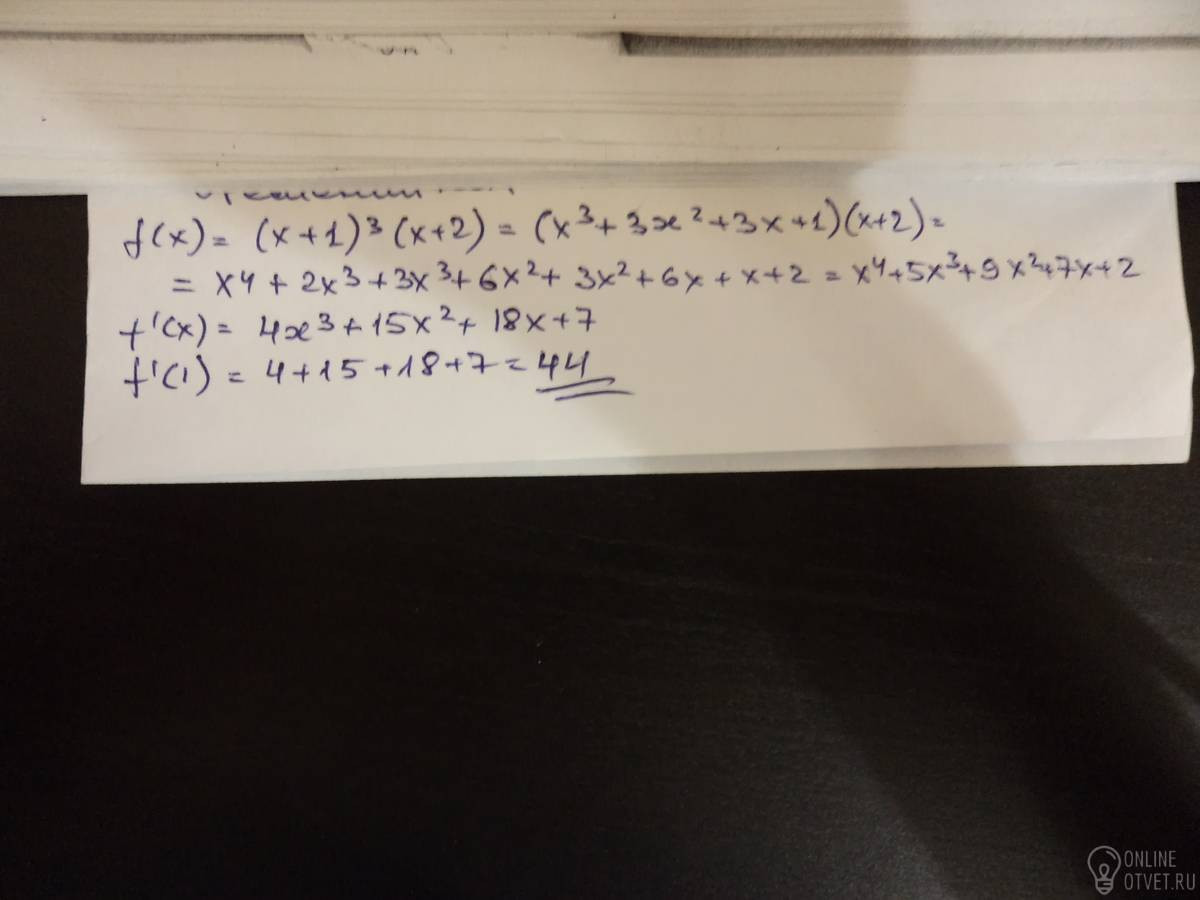 f(x) = (x+1)³(x+2) = (x³+3x²+3x+1)(x+2) =
= x⁴ + 2x³ + 3x³ + 6x² + 3x² + 6x + x + 2 = x⁴+5x³+9x²+7x+2
f'(x) = 4x³ + 15x² + 18x + 7
f'(1) = 4 + 15 + 18 + 7 = 44
ONLINE
OTVET.RU